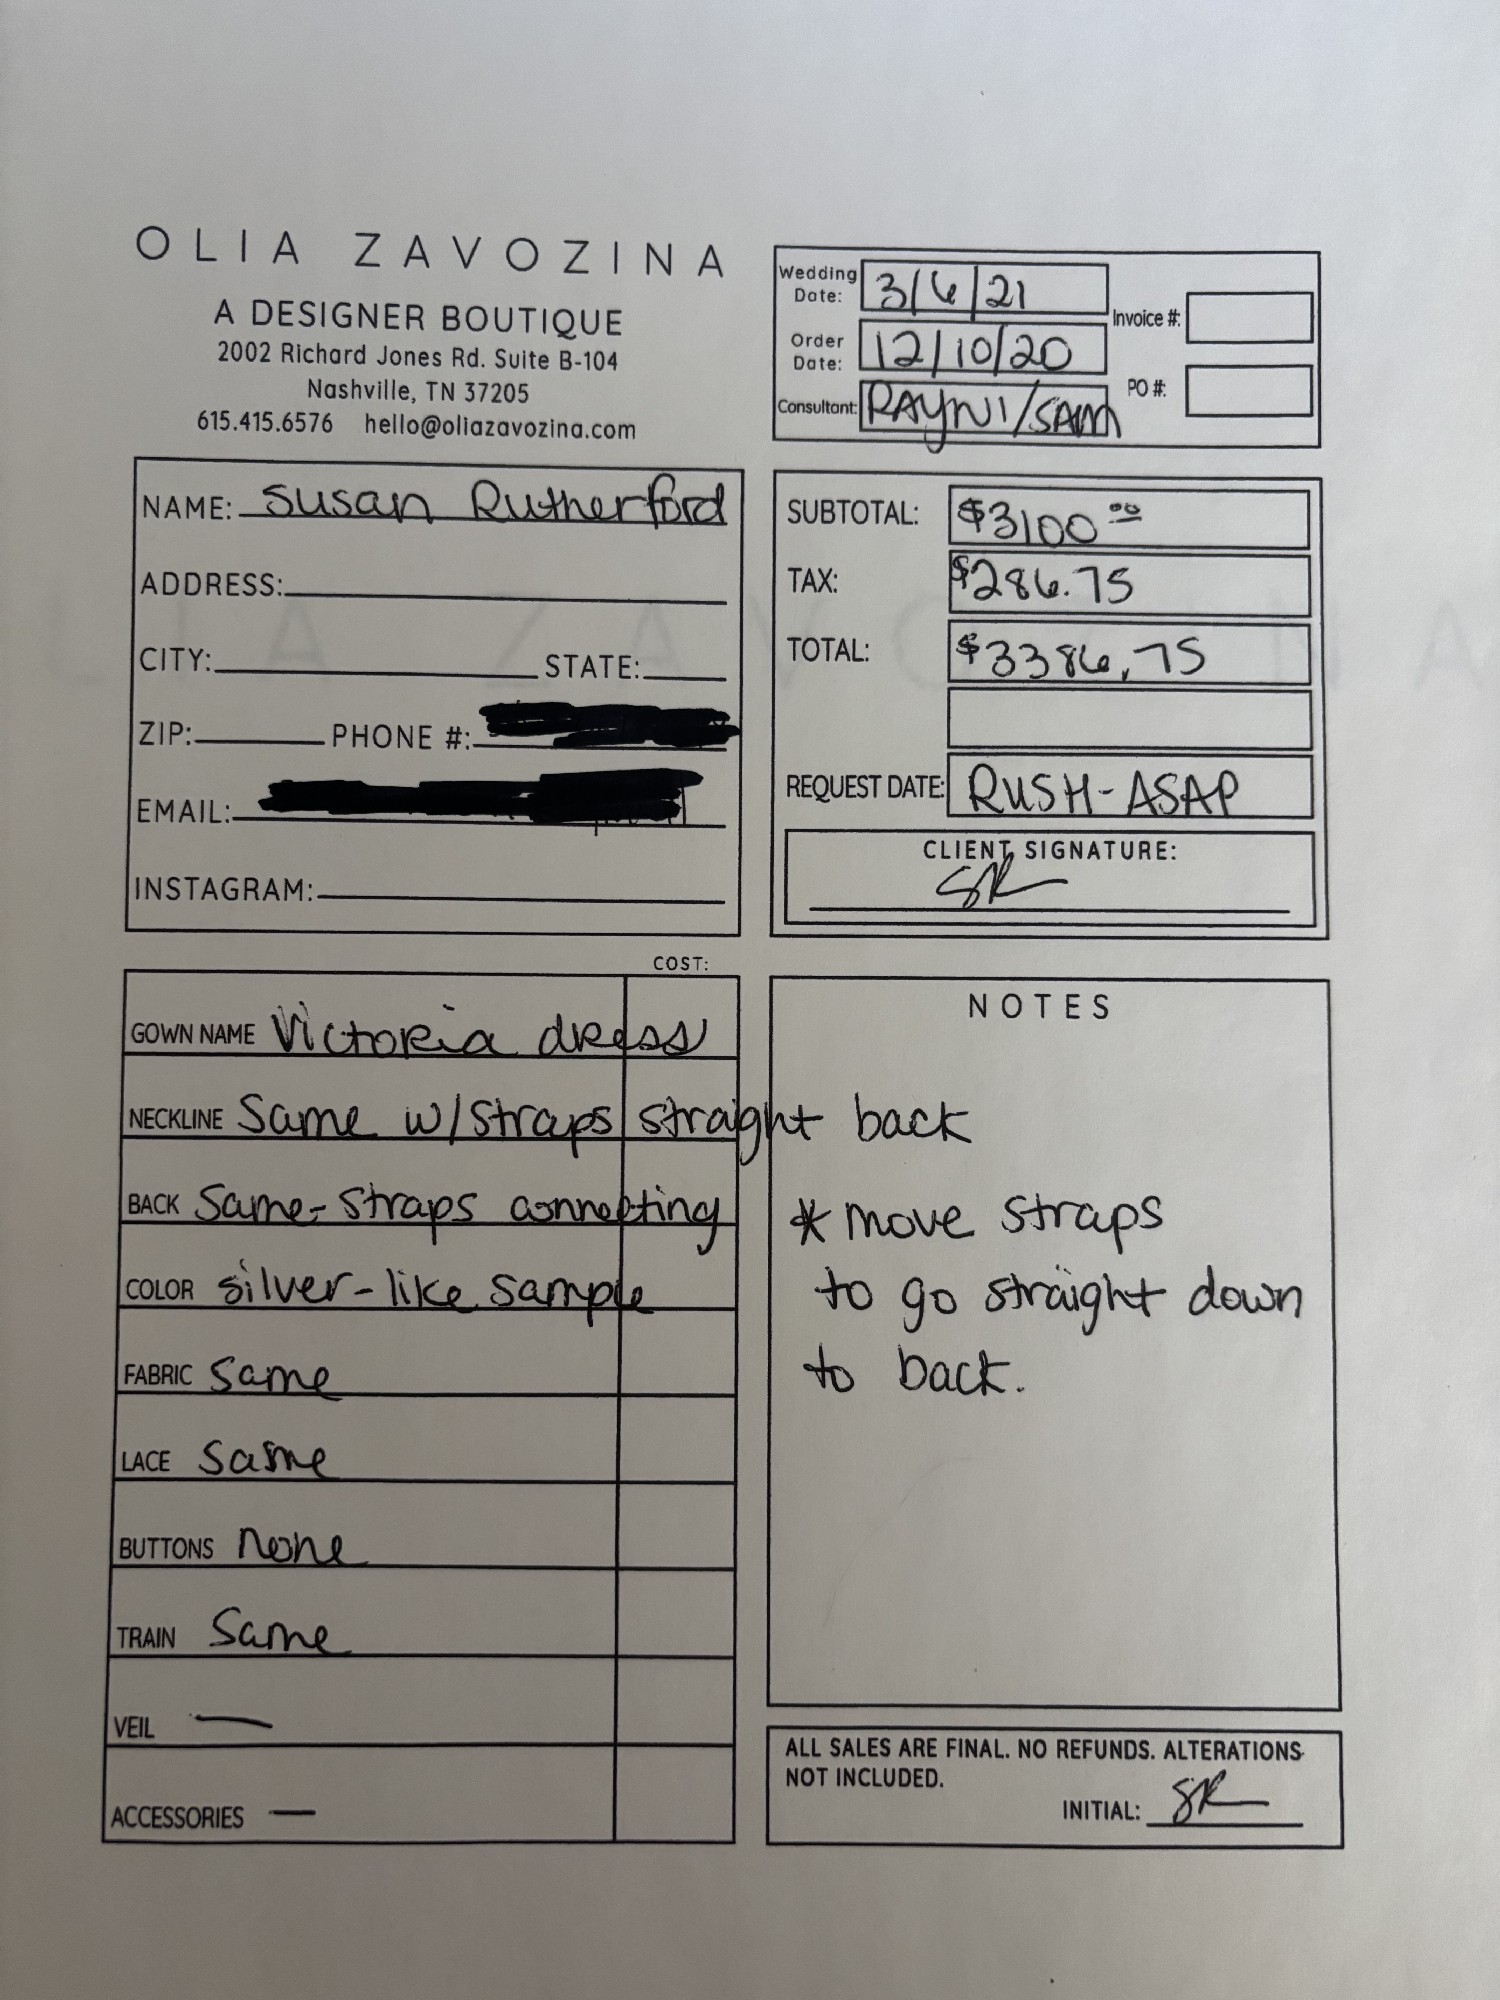 OLIA ZAVOZINA
A DESIGNER BOUTIQUE
2002 Richard Jones Rd. Suite B-104
Nashville, TN 37205
615.415.6576 hello@oliazavozina.com
Wedding Date: 3/6/21
Order Date: 12/10/20
Consultant: RAYNI/SAM
Invoice #:
PO #:
NAME: Susan Rutherford
ADDRESS:
CITY: STATE:
ZIP: PHONE #:
EMAIL:
INSTAGRAM:
SUBTOTAL: $3100.00
TAX: $286.75
TOTAL: $3386.75
REQUEST DATE: RUSH-ASAP
CLIENT SIGNATURE:
SR
COST:
GOWN NAME Victoria dress
NECKLINE Same w/straps straight back
BACK Same-straps connecting
COLOR silver-like sample
FABRIC same
LACE same
BUTTONS none
TRAIN Same
VEIL —
ACCESSORIES —
NOTES
* move straps
to go straight down
to back.
ALL SALES ARE FINAL. NO REFUNDS. ALTERATIONS
NOT INCLUDED.
INITIAL: SR